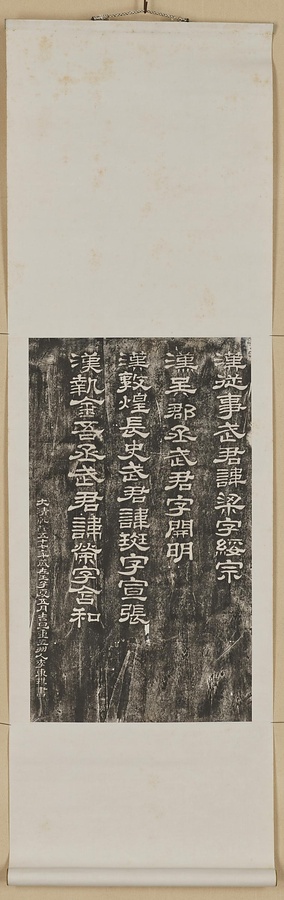 漢從事武君諱梁字綏宗
漢吳郡丞武君字開明
漢敦煌長史武君諱斑字宣張
漢執金吾丞武君諱榮字含和
大清乾隆五十七年歲在壬子